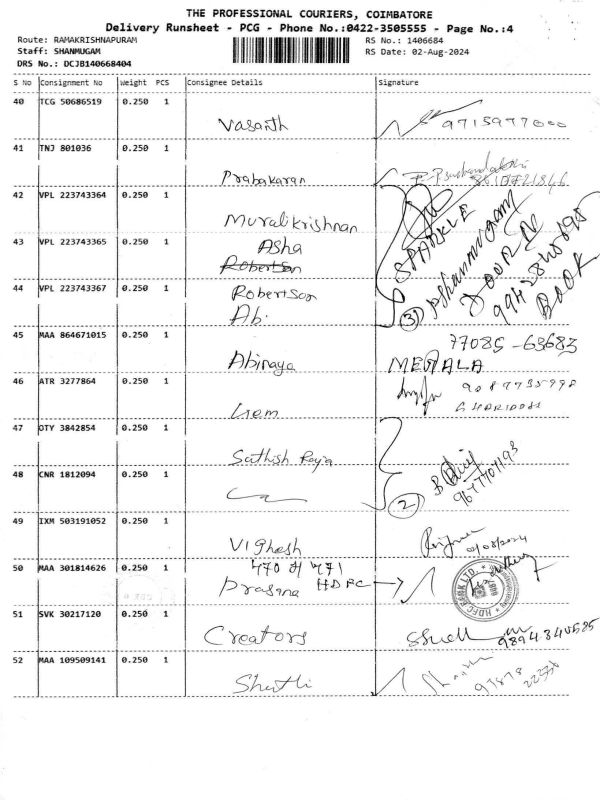 THE PROFESSIONAL COURIERS, COIMBATORE
Delivery Runsheet - PCG - Phone No.:0422-3505555 - Page No.:4
Route: RAMAKRISHNAPURAM RS No.: 1406684
Staff: SHANMUGAM RS Date: 02-Aug-2024
DRS No.: DCJB140668404
S No Consignment No Weight PCS Consignee Details Signature
40 TCG 50686519 0.250 1
Vasanth 9715977000
41 TNJ 801036 0.250 1
Prabakaran
42 VPL 223743364 0.250 1
Muralikrishnan
SPARKLE
Shanmugam
43 VPL 223743365 0.250 1
Asha
Robertson
44 VPL 223743367 0.250 1
Robertson
Ab.
3
BOOK
45 MAA 864671015 0.250 1
77085-63683
Abinaya MEGALA
46 ATR 3277864 0.250 1
47 OTY 3842854 0.250 1
Sathish Raja
48 CNR 1812094 0.250 1
2
49 IXM 503191052 0.250 1
Vighesh
50 MAA 301814626 0.250 1
Prasana HDFC
HDFC BANK LTD.
51 SVK 30217120 0.250 1
Creators
52 MAA 109509141 0.250 1